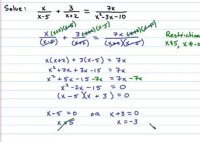 Solve: x/(x-5) + 3/(x+2) = 7x/(x²-3x-10)
x(x+2)(x-5)/(x-5) + 3(x+2)(x-5)/(x+2) = 7x(x+2)(x-5)/(x+2)(x-5)
Restriction
x≠5, x≠-2
x(x+2) + 3(x-5) = 7x
x²+2x+3x-15 = 7x
x²+5x-15-7x = 7x-7x
x²-2x-15 = 0
(x-5)(x+3) = 0
x-5=0 or x+3=0
x=5 x=-3